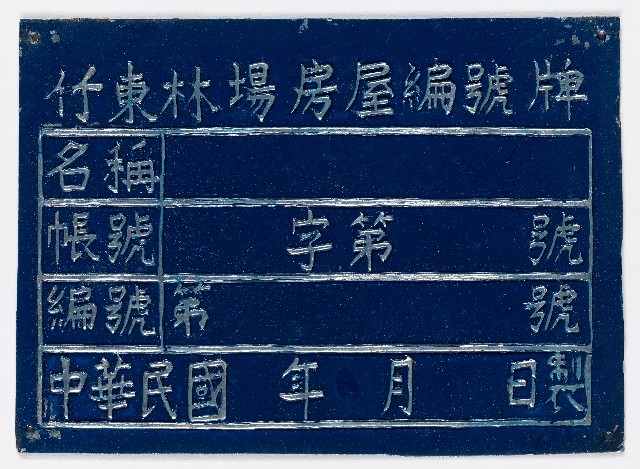 竹東林場房屋編號牌
名稱
帳號 字第 號
編號 第 號
中華民國 年 月 日製